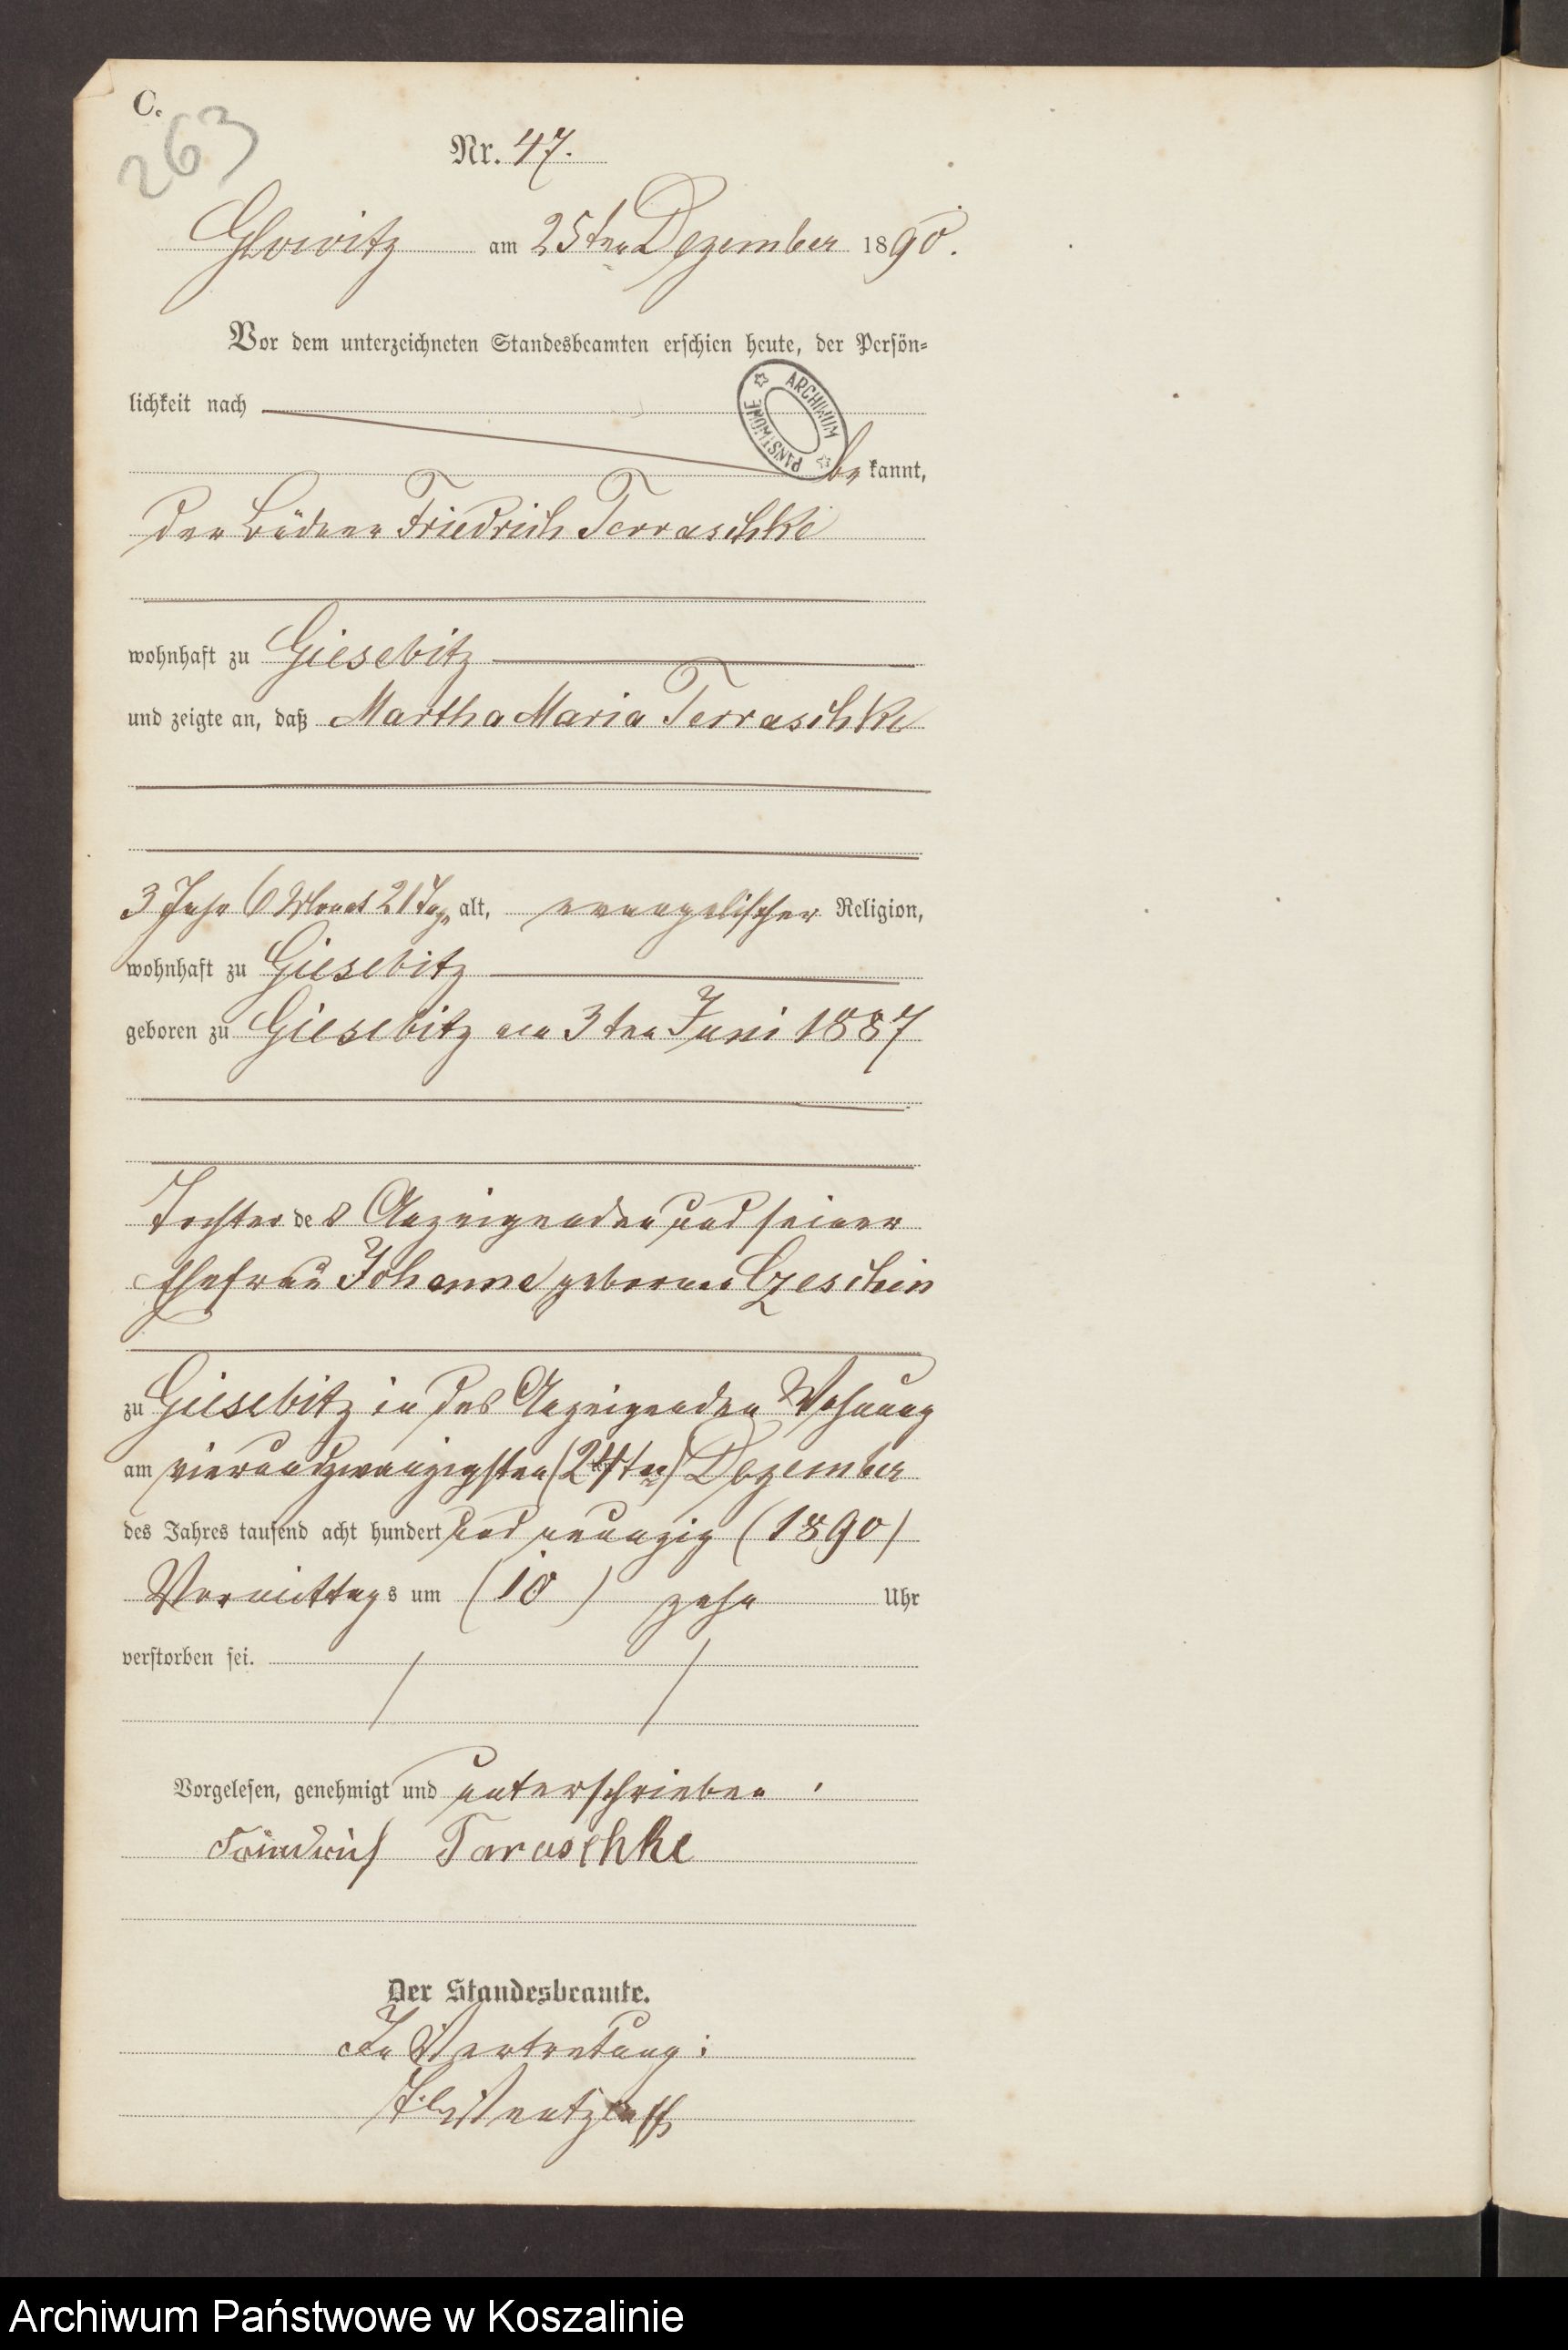 C.
263
Nr. 47.
Glowitz am 25ten Dezember 1890.
Vor dem unterzeichneten Standesbeamten erschien heute, der Persön-
lichkeit nach
ARCHIWUM PAŃSTWOWE
be kannt,
der Büdner Friedrich Terraschke
wohnhaft zu Giesebitz
und zeigte an, daß Martha Maria Terraschke
3 Jahr 6 Monat 21 Tage alt, evangelischer Religion,
wohnhaft zu Giesebitz
geboren zu Giesebitz am 3ten Juni 1887
Tochter des Anzeigenden und seiner
Ehefrau Johanne geborene Czeschin
zu Giesebitz in des Anzeigenden Wohnung
am vierundzwanzigsten (24ten) Dezember
des Jahres tausend acht hundert und neunzig (1890)
Vormittags um (10) zehn Uhr
verstorben sei.
Vorgelesen, genehmigt und unterschrieben
Friedrich Taraschke
Der Standesbeamte.
In Vertretung:
Wentzlaff
Archiwum Państwowe w Koszalinie